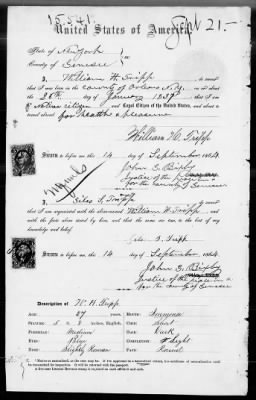 15541
Sept 21-
United States of America.
State of New York
County of Genesee
I, William H. Tripp
that I was born in the county of Orleans N.Y.
26th day of January 1837
a Native citizen and Loyal Citizen of the United States, and about to
travel abroad for health & pleasure
William H. Tripp
Sworn to before me this 14 day of September 1864
John G. Bixby
Justice of the peace in &
for the county of Genesee
I, Giles S. Tripp
that I am acquainted with the above-named William H. Tripp, and
with the facts above stated by him, and that the same are true, to the best of my
knowledge and belief.
Giles S. Tripp
Sworn to before me this 14 day of September 1864
John G. Bixby
Justice of the peace in &
for the county of Genesee
Description of W. H. Tripp
Age: 27 years.
Stature: 5 8 inches, English.
Forehead: Medium
Eyes: Blue
Nose: Slightly Roman
Mouth: Common
Chin: Short
Hair: Dark
Complexion: Light
Face: Round